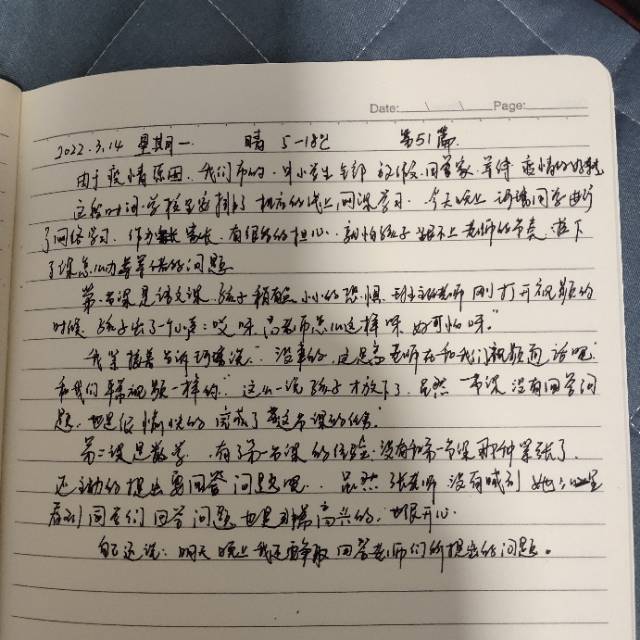 Date: Page:
2022.3.14 星期一 晴 5-18℃ 第51篇
由于疫情原因,我们市的中小学生全部放假回家,等待疫情的
这段时间学校里安排了相应的线上网课学习.今天晚上 同学进行
了网络学习.作为家长,有很多的担心.就怕孩子跟不上老师的节奏,落下
了课怎么办等等的问题
第一节课是语文课.孩子稍有点小小的恐惧.班主任老师刚打开视频的
时候 孩子出了个小声:"哎呀 高老师怎么这样呀 好可怕呀."
我笑接着告诉 说:"没事的,这是高老师在和我们视频通话呢
和我们平常视频一样的"这么一说孩子才放下了.虽然一节课没有回答问
题,也是很愉快的完成了这节课的任务.
第二课是数学,有了第一节课的经验,没有和第一节课那种紧张了.
还主动的提出要回答问题呢.虽然张老师没有喊到她,
看到同学们回答问题也是非常高兴的,也很开心.
自己还说:明天晚上我还要争取回答老师们所提出的问题。